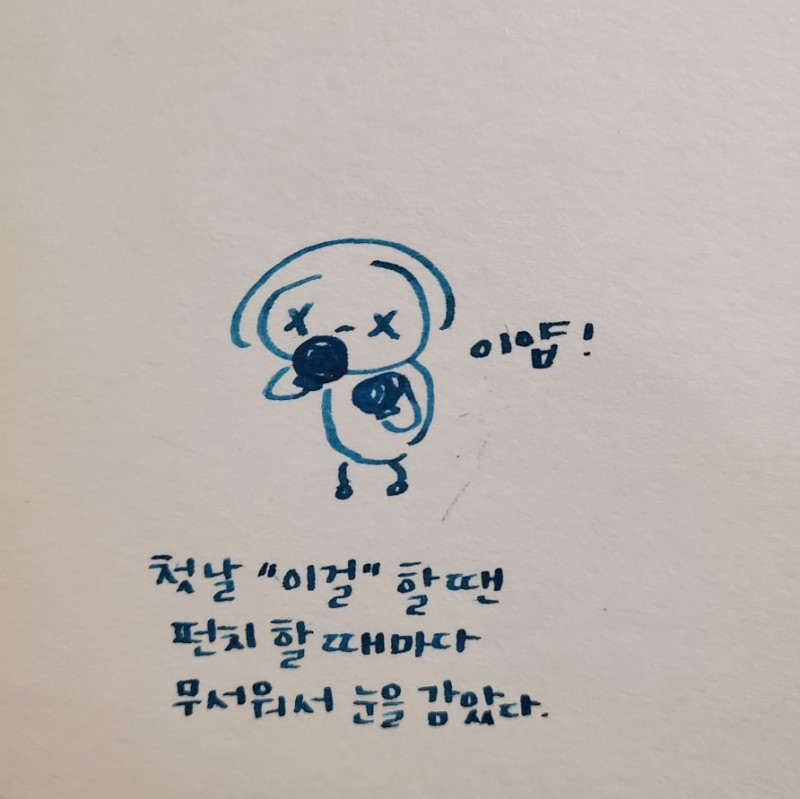 이얍!
첫날 "이걸" 할 땐
펀치 할 때마다
무서워서 눈을 감았다.